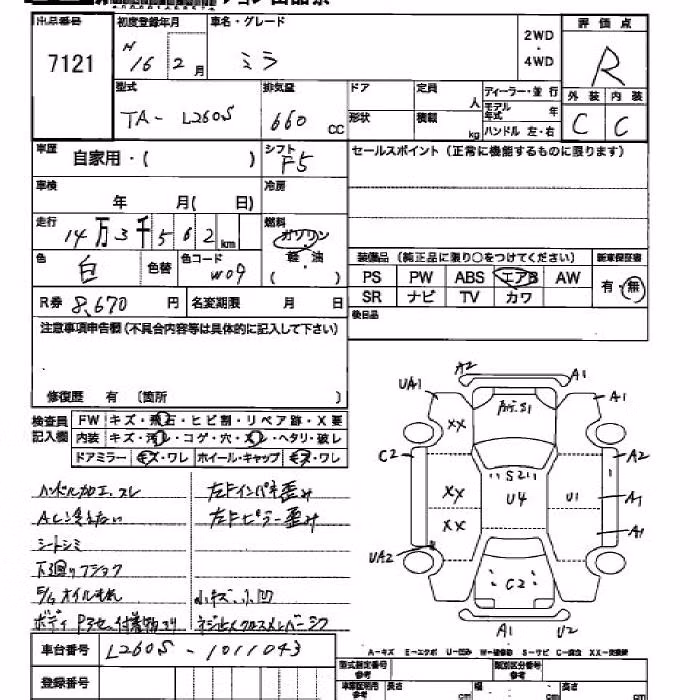 出品番号 初度登録年月 車名・グレード 2WD・4WD 評価点
7121 H16 2月 ミラ R
型式 排気量 ドア 定員 人 ディーラー・並行 外装 内装
TA-L260S 660 CC 形状 積載 kg モデル年式 年 ハンドル 左・右 C C
車歴 自家用・( ) シフト F5 セールスポイント(正常に機能するものに限ります)
車検 年 月( 日) 冷房
走行 14万3千562km 燃料 ガソリン
色 白 色替 色コード W09 軽・油 ( )
装備品(純正品に限り○をつけてください) 新車保証書
PS PW ABS エアB AW 有・無
SR ナビ TV カワ
R券 8,670円 名変期限 月 日 後日品
注意事項申告欄(不具合内容等は具体的に記入して下さい)
修復歴 有 〔箇所 〕
検査員記入欄 FW キズ・飛石・ヒビ割・リペア跡・X要
内装 キズ・汚レ・コゲ・穴・スレ・ヘタリ・破レ
ドアミラー キズ・ワレ ホイール・キャップ キズ・ワレ
ハンドル加工、スレ 左Fインパネ歪み
左Fピラー歪み
シートシミ
下廻り
E/G オイルもれ 小キズ、小凹
ボディ
車台番号 L260S-1011043
登録番号
A2 A1
UA1 A1
XX
C2 S21 A2
XX U4 U1 A1
XX A1
UA2
C2
A1 U2
A-キズ E-エクボ U-凹み W-補修跡 S-サビ C-腐食 XX-交換済
型式指定番号 参考 類別区分番号 参考
長さ cm 幅 cm 高さ cm